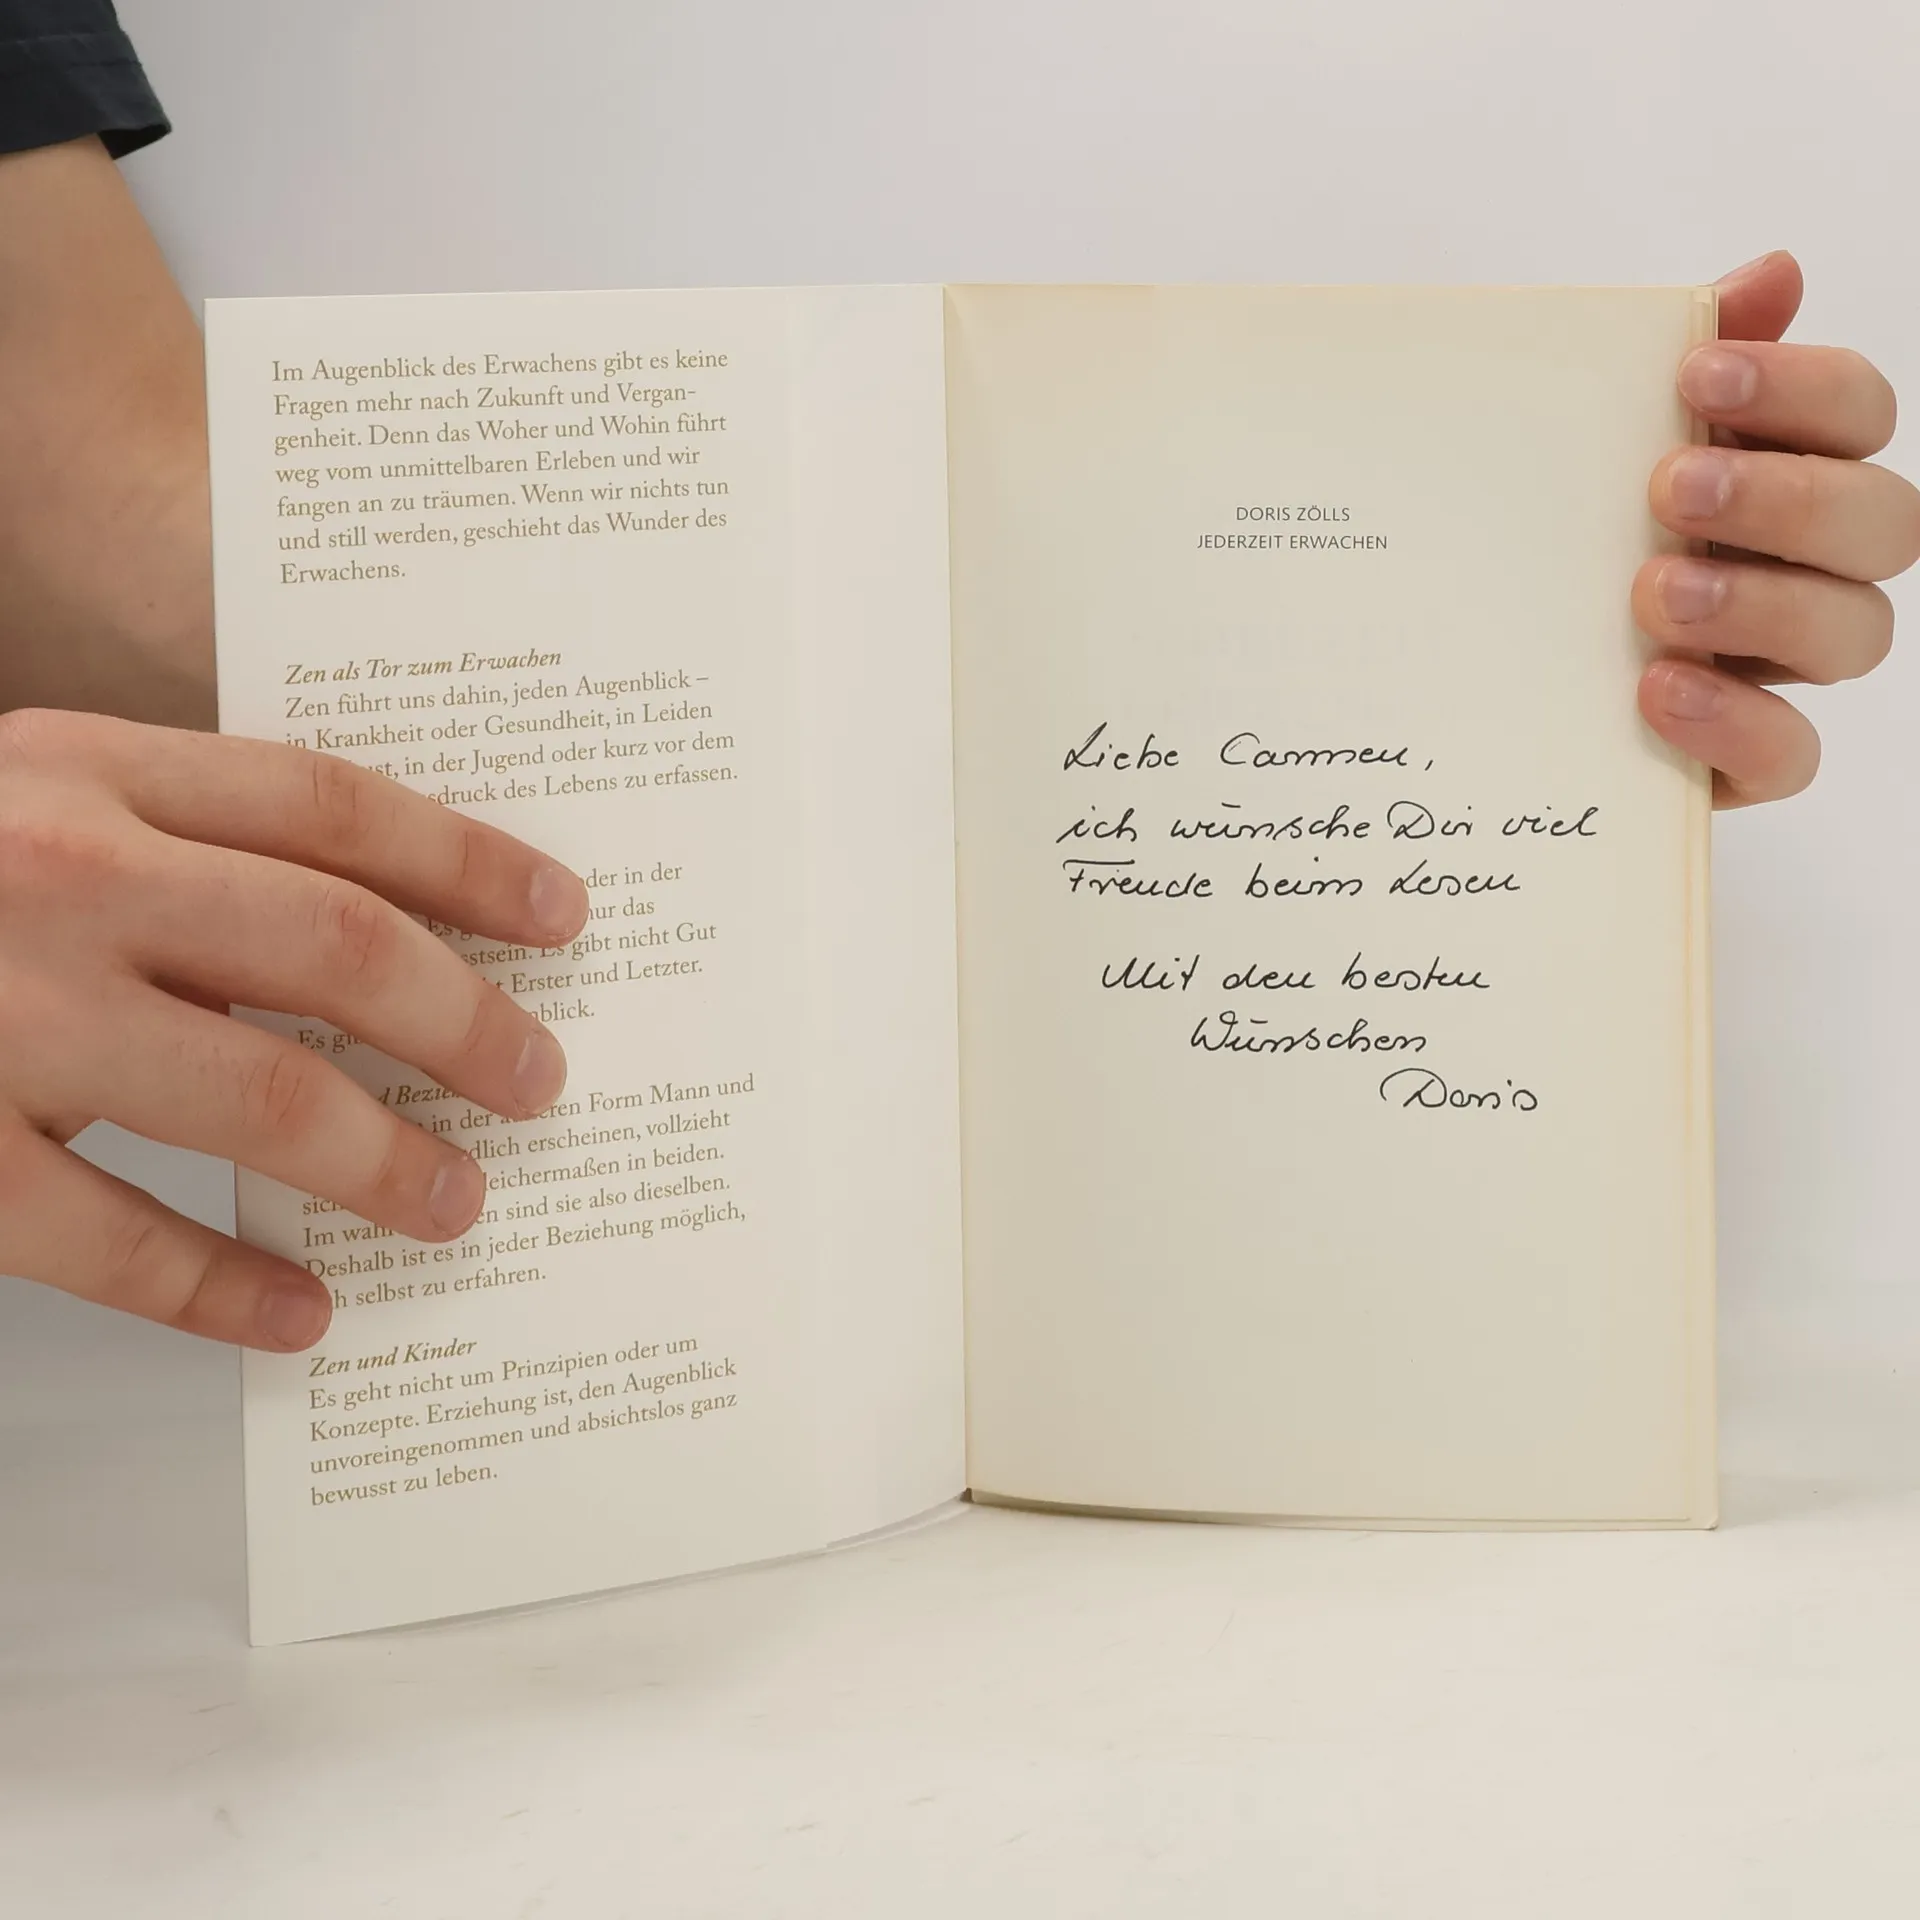 Im Augenblick des Erwachens gibt es keine
Fragen mehr nach Zukunft und Vergan-
genheit. Denn das Woher und Wohin führt
weg vom unmittelbaren Erleben und wir
fangen an zu träumen. Wenn wir nichts tun
und still werden, geschieht das Wunder des
Erwachens.
Zen als Tor zum Erwachen
Zen führt uns dahin, jeden Augenblick –
in Krankheit oder Gesundheit, in Leiden
in der Jugend oder kurz vor dem
des Lebens zu erfassen.
in der
nur das
Es gibt nicht Gut
Erster und Letzter.
Es
in der Form Mann und
erscheinen, vollzieht
in beiden.
Im sind sie also dieselben.
Deshalb ist es in jeder Beziehung möglich,
selbst zu erfahren.
Zen und Kinder
Es geht nicht um Prinzipien oder um
Konzepte. Erziehung ist, den Augenblick
unvoreingenommen und absichtslos ganz
bewusst zu leben.
DORIS ZÖLLS
JEDERZEIT ERWACHEN
Liebe Carmen,
ich wünsche Dir viel
Freude beim Lesen
Mit den besten
Wünschen
Doris